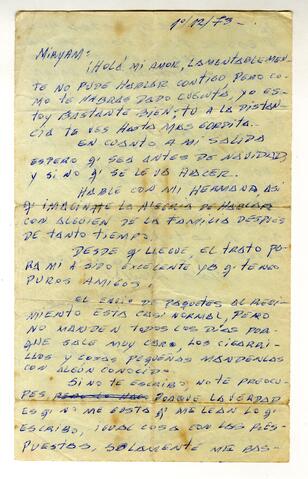 1º/12/73-
MIRYAM:
¡HOLA MI AMOR, LAMENTABLEMEN-
TE NO PUDE HABLAR CONTIGO PERO CO-
MO TE HABRAS DADO CUENTA, YO ES-
TOY BASTANTE BIEN; TU A LA DISTAN-
CIA TE VES HASTA MAS GORDITA.
EN CUANTO A MI SALIDA
ESPERO Q' SEA ANTES DE NAVIDAD,
Y SI NO Q' SE LE VA HACER.
HABLÉ CON MI HERMANA ASI
Q' IMAGINATE LA ALEGRIA DE HABLAR
CON ALGUIEN DE LA FAMILIA DESPUES
DE TANTO TIEMPO.
DESDE Q' LLEGUE, EL TRATO PA-
RA MI A SIDO EXCELENTE YA Q' TENGO
PUROS AMIGOS.
EL ENVIO DE PAQUETES AL REGI-
MIENTO ESTA CASI NORMAL, PERO
NO MANDEN TODOS LOS DIAS POR-
QUE SALE MUY CARO, LOS CIGARRI-
LLOS Y COSAS PEQUEÑAS MANDENLAS
CON ALGÚN CONOCIDO.
SI NO TE ESCRIBO, NO TE PREOCU-
PES, PORQUE LA VERDAD
ES Q' NO ME GUSTA Q' ME LEAN LO Q'
ESCRIBO, IGUAL COSA CON LAS RES-
PUESTAS, SOLAMENTE ME BAS-